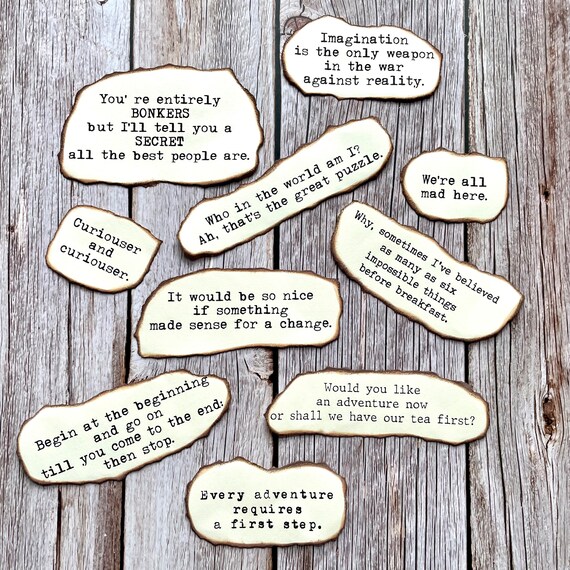 Imagination
is the only weapon
in the war
against reality.
You' re entirely
BONKERS
but I'll tell you a
SECRET
all the best people are.
Who in the world am I?
Ah, that's the great puzzle.
We're all
mad here.
Curiouser
and
curiouser.
Why, sometimes I've believed
as many as six
impossible things
before breakfast.
It would be so nice
if something
made sense for a change.
Would you like
an adventure now
or shall we have our tea first?
Begin at the beginning
and go on
till you come to the end:
then stop.
Every adventure
requires
a first step.